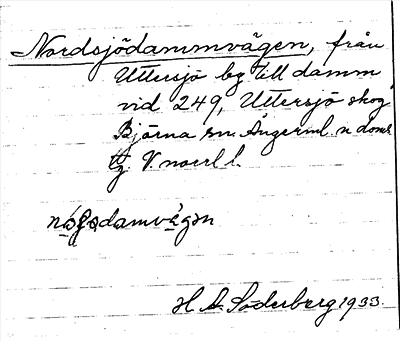 Nordsjödammvägen, från
Uttersjö by till damm
vid 249, Uttersjö skog
Björna sn. Ångerml. n doms
V. norrl l.
H. A. Söderberg 1933.